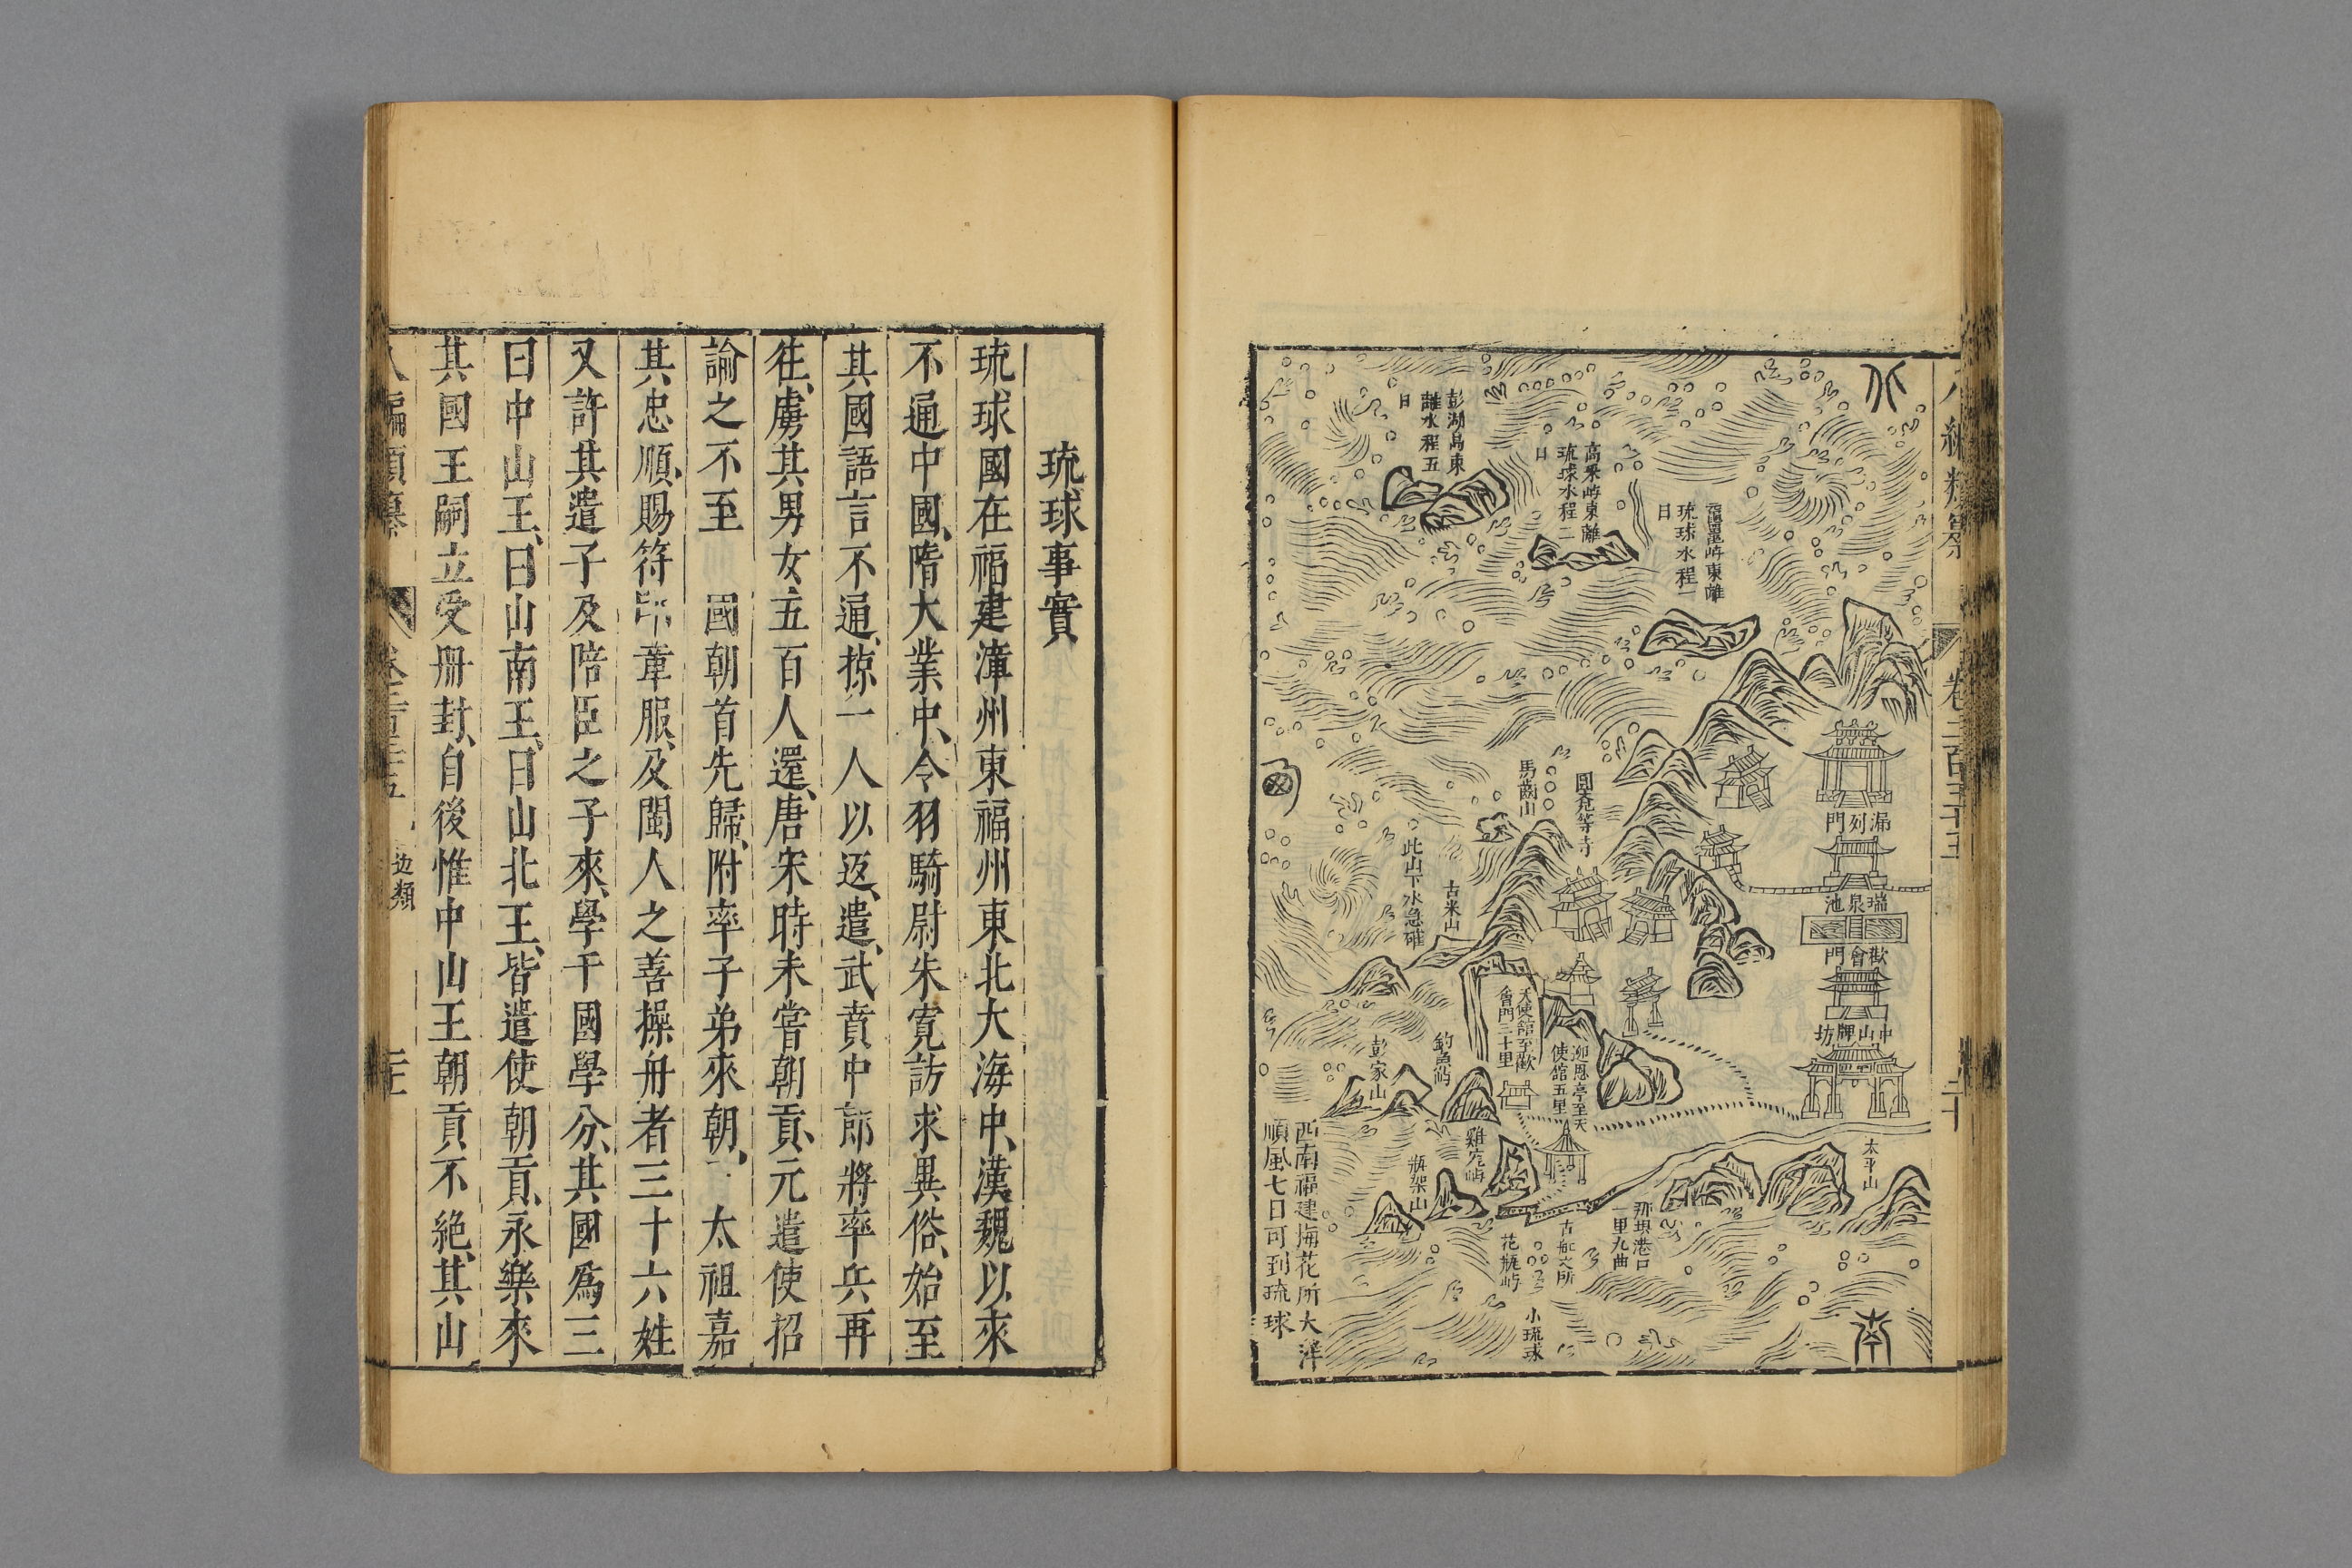 北
南
西
彭湖島東
離水程五
日
高米嶼東離
琉球水程二
日
黿鼊嶼東離
琉球水程一
日
漏刻門
瑞泉池
歡會門
中山牌坊
圓覺等寺
馬齒山
古米山
此山下水急礁
天使舘至歡
會門三十里
迎恩亭至天
使舘五里
釣魚嶼
彭家山
雞籠嶼
瓶架山
花瓶嶼
太平山
那覇港口
一里九曲
小琉球
西南福建梅花所大洋
順風七日可到琉球
琉球事實
琉球國在福建漳州東福州東北大海中、漢魏以來
不通中國、隋大業中、令羽騎尉朱寬訪求異俗、始至
其國語言不通、掠一人以返、遣、武賁中郎將率兵再
往、虜其男女、五百人還、唐宋時未嘗朝貢、元遣使招
諭之不至 國朝首先歸附率子弟來朝、 太祖嘉
其忠順、賜符印章服、及閩人之善操舟者三十六姓
又許其遣子及陪臣之子來、學于國學分、其國爲三
曰中山王、曰山南王、曰山北王、皆遣使朝貢、永樂來
其國王嗣立受冊封、自後惟中山王朝貢不絕、其山
邊類